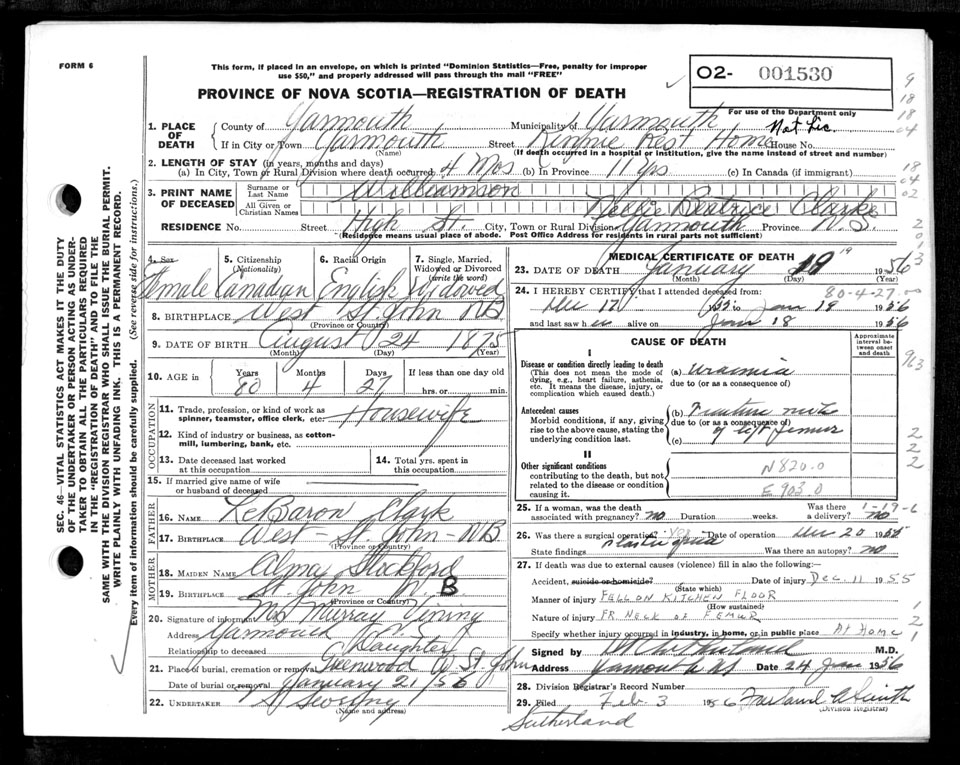 FORM 6
This form, if placed in an envelope, on which is printed "Dominion Statistics—Free, penalty for improper
use $50," and properly addressed will pass through the mail "FREE"
02- 001530
PROVINCE OF NOVA SCOTIA—REGISTRATION OF DEATH
For use of the Department only
Not Lic.
1. PLACE OF DEATH
County of Yarmouth Municipality of Yarmouth
If in City or Town Yarmouth Street Rest Home House No.
(Name) (If death occurred in a hospital or institution, give the name instead of street and number)
2. LENGTH OF STAY (in years, months and days)
(a) In City, Town or Rural Division where death occurred 4 Mos (b) In Province 11 yrs (c) In Canada (if immigrant)
3. PRINT NAME OF DECEASED
Surname or Last Name Williamson
All Given or Christian Names Nellie Beatrice Clarke
RESIDENCE No. Street High St. City, Town or Rural Division Yarmouth Province N.S.
(Residence means usual place of abode. Post Office Address for residents in rural parts not sufficient)
4. Sex Female
5. Citizenship (Nationality) Canadian
6. Racial Origin English
7. Single, Married, Widowed or Divorced (write the word) Widowed
8. BIRTHPLACE West St. John NB
(Province or Country)
9. DATE OF BIRTH August 24 1875
(Month) (Day) (Year)
10. AGE in Years 80 Months 4 Days 27 If less than one day old
hrs. or min.
OCCUPATION
11. Trade, profession, or kind of work as spinner, teamster, office clerk, etc. Housewife
12. Kind of industry or business, as cotton-mill, lumbering, bank, etc.
13. Date deceased last worked at this occupation
14. Total yrs. spent in this occupation
15. If married give name of wife or husband of deceased
FATHER
16. NAME LeBaron Clark
17. BIRTHPLACE West - St. John - NB
(Province or Country)
MOTHER
18. MAIDEN NAME Alma Stockford
19. BIRTHPLACE St. John N. B
(Province or Country)
20. Signature of informant Mrs Murray Vining
Address Yarmouth N.S.
Relationship to deceased Daughter
21. Place of burial, cremation or removal Greenwood W St. John
Date of burial or removal January 21/56
22. UNDERTAKER
(Name and address)
MEDICAL CERTIFICATE OF DEATH
23. DATE OF DEATH January 19 1956
24. I HEREBY CERTIFY that I attended deceased from 80-4-27
Dec 17 1955 to Jan 18 1956
and last saw her alive on Jan 18 1956
CAUSE OF DEATH
Approximate interval between onset and death
I
Disease or condition directly leading to death
(This does not mean the mode of dying, e.g., heart failure, asthenia, etc. It means the disease, injury, or complication which caused death.)
(a) Uraemia
due to (or as a consequence of)
Antecedent causes
Morbid conditions, if any, giving rise to the above cause, stating the underlying condition last.
(b) Fracture neck
due to (or as a consequence of)
of left femur
(c)
II
Other significant conditions
contributing to the death, but not related to the disease or condition causing it.
N820.0
E903.0
25. If a woman, was the death associated with pregnancy? no Duration weeks. Was there a delivery? no
1-19-6
26. Was there a surgical operation? yes Date of operation Dec 20 1955
State findings Was there an autopsy? no
27. If death was due to external causes (violence) fill in also the following:—
Accident, suicide or homicide? Date of injury Dec. 11 1955
(State which)
Manner of injury FELL ON KITCHEN FLOOR
(How sustained)
Nature of injury FR NECK OF FEMUR
Specify whether injury occurred in industry, in home, or in public place AT HOME
Signed by M.D.
Address Yarmouth NS Date 24 Jan 1956
28. Division Registrar's Record Number
29. Filed Feb. 3 1956
(Division Registrar)
Sutherland
SEC. 46—VITAL STATISTICS ACT MAKES IT THE DUTY
OF THE UNDERTAKER OR PERSON ACTING AS UNDER-
TAKER TO OBTAIN ALL THE PARTICULARS REQUIRED
IN THE "REGISTRATION OF DEATH" AND TO FILE THE
SAME WITH THE DIVISION REGISTRAR WHO SHALL ISSUE THE BURIAL PERMIT.
WRITE PLAINLY WITH UNFADING INK. THIS IS A PERMANENT RECORD.
Every item of information should be carefully supplied. (See reverse side for instructions.)